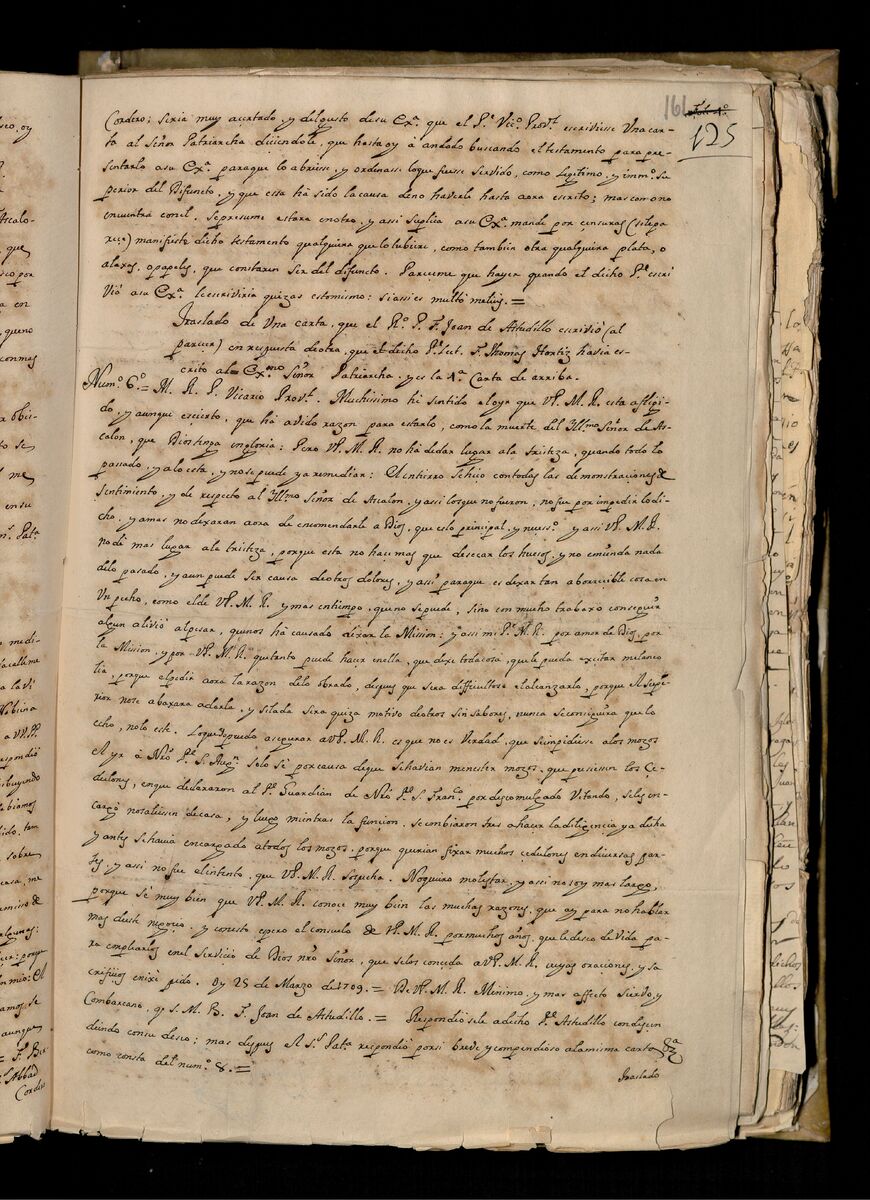 161 Fol. 4º
125
Cordero; seria muy acertado, y del gusto de su Exª que el Pe Vicº Provl escriviesse Una car-
ta al Señor Patriarcha diciendole, que hasta oy à andado buscando el testamento para pre-
sentarlo a su Exª paraque lo abriesse, y ordinasse loque fuesse servido, como legitimo, y immº Su
perior del Difuncto, y que essa hà sido la causa de no haverle hasta aora escrito; mas como no
encuentra con el. Se presume estara en otro, y assi suplica a su Exª mande por censuras (si le pa
rece) manifieste dicho testamento qualquiera que lo tubiere, como tambien otra qualquiera plata, o
alaxas, o papeles, que constaren ser del difuncto. Pareceme que hayer quando el dicho Pe escri
viò a su Exª le escriviria quizas esto mismo: si assi es multò melius. =
Traslado de Una carta, que el Rº P. F. Joan de Astudillo escriviò (al
parecer) en respuesta de otra, que el dicho Pe Lect. F. Thomas Hortiz havia es-
crito al Exmo Señor Patriarcha, y es la 4ª Carta de arriba.
Numº 6º = M. R. P. Vicario Provl. Muchissimo hè sentido el oyr que VP. M. R. esta afligi-
do, y aunque es cierto, que hà avido razon para estarlo, como la muerte del Yllmo Señor de As-
calon, que Dios tenga en gloria: Pero VP. M. R. no hà de dar lugar a la tristeza, quando todo lo
passado, ya lo esta, y no se puede ya remediar: El entierro se hico con todas las demonstraciones de
sentimiento, y de respecto al Yllmo Señor de Ascalon, y assi los que no fueron, no fue por impedir lo di-
cho, y a mas no dexaran aora de encomendarle a Dios, que es lo principal, y necessº. y assi VP. M. R.
no dè mas lugar a la tristeza, porque esta no hace mas que desecar los huesos, y no emienda nada
delo passado, y aun puede ser causa de otros dolores, y assi paraque es dexar tan aborrecible cosa en
Un pecho, como el de VP. M. R. y mas en tiempo, que no se puede, sino con mucho trabaxo conseguir
algun alivio al pesar, que nos hà causado dexar la Mission: y assi mi Pe M. R. por amor de Dios, por
la Mission, y por VP. M. R. que tanto puede hacer en ella, que dexe toda cosa, que le pueda excitar melanco
lia, porque el pedir aora la razon delo obrado, despues que sera difficultoso el alcanzarlo, porque El Supe-
rior no se abaxara a darla, y si la da sera quiza motivo de otros sinsabores, nunca se conseguira que lo
echo, no lo estè. Loque puedo asegurar a VP. M. R. es que no es Verdad, que se impidiesse a los mozos
El yr à Nro Pe S. Augn solo sè por causa de que se havian menester mozos, que pusiessen los Ce-
dulones, en que declararon al Pe Guardian de Nro Pe S. Franco por descomulgado Vitando, se les en-
cargò no saliessen de casa, y luego mientras la funcion, se embiaron tres a hacer la diligencia ya dicha
y antes se havia encargado a todos los mozos, porque querian fixar muchos cedulones en diversas par-
tes, y assi no fue el intento, que VP. M. R. sospecha. No quiero molestar, y assi no soy mas largo,
porque sè muy bien que VP. M. R. conoce muy bien las muchas razones, que ay para no hablar
mas deste negocio, y con esto espero el consuelo de VP. M. R. por muchos años, que le deseo de Vida pa-
ra emplearlos en el Servicio de Dios nro Señor, que se los conceda a VP. M. R. cuyas oraciones, y sa
crificios enixè pido. Oy 25 de Marzo de 1709. = De VP. M. R. Minimo, y mas affecto Siervo, y
Combarcano, q. S. M. B. F. Joan de Astudillo. = Respondiòsele a dicho Pe Astudillo condescen
diendo con su deseo; mas despues El Sr Pata respondiò por si breve y compendiosa a la misma carta
como consta del numº 8. =
Traslado